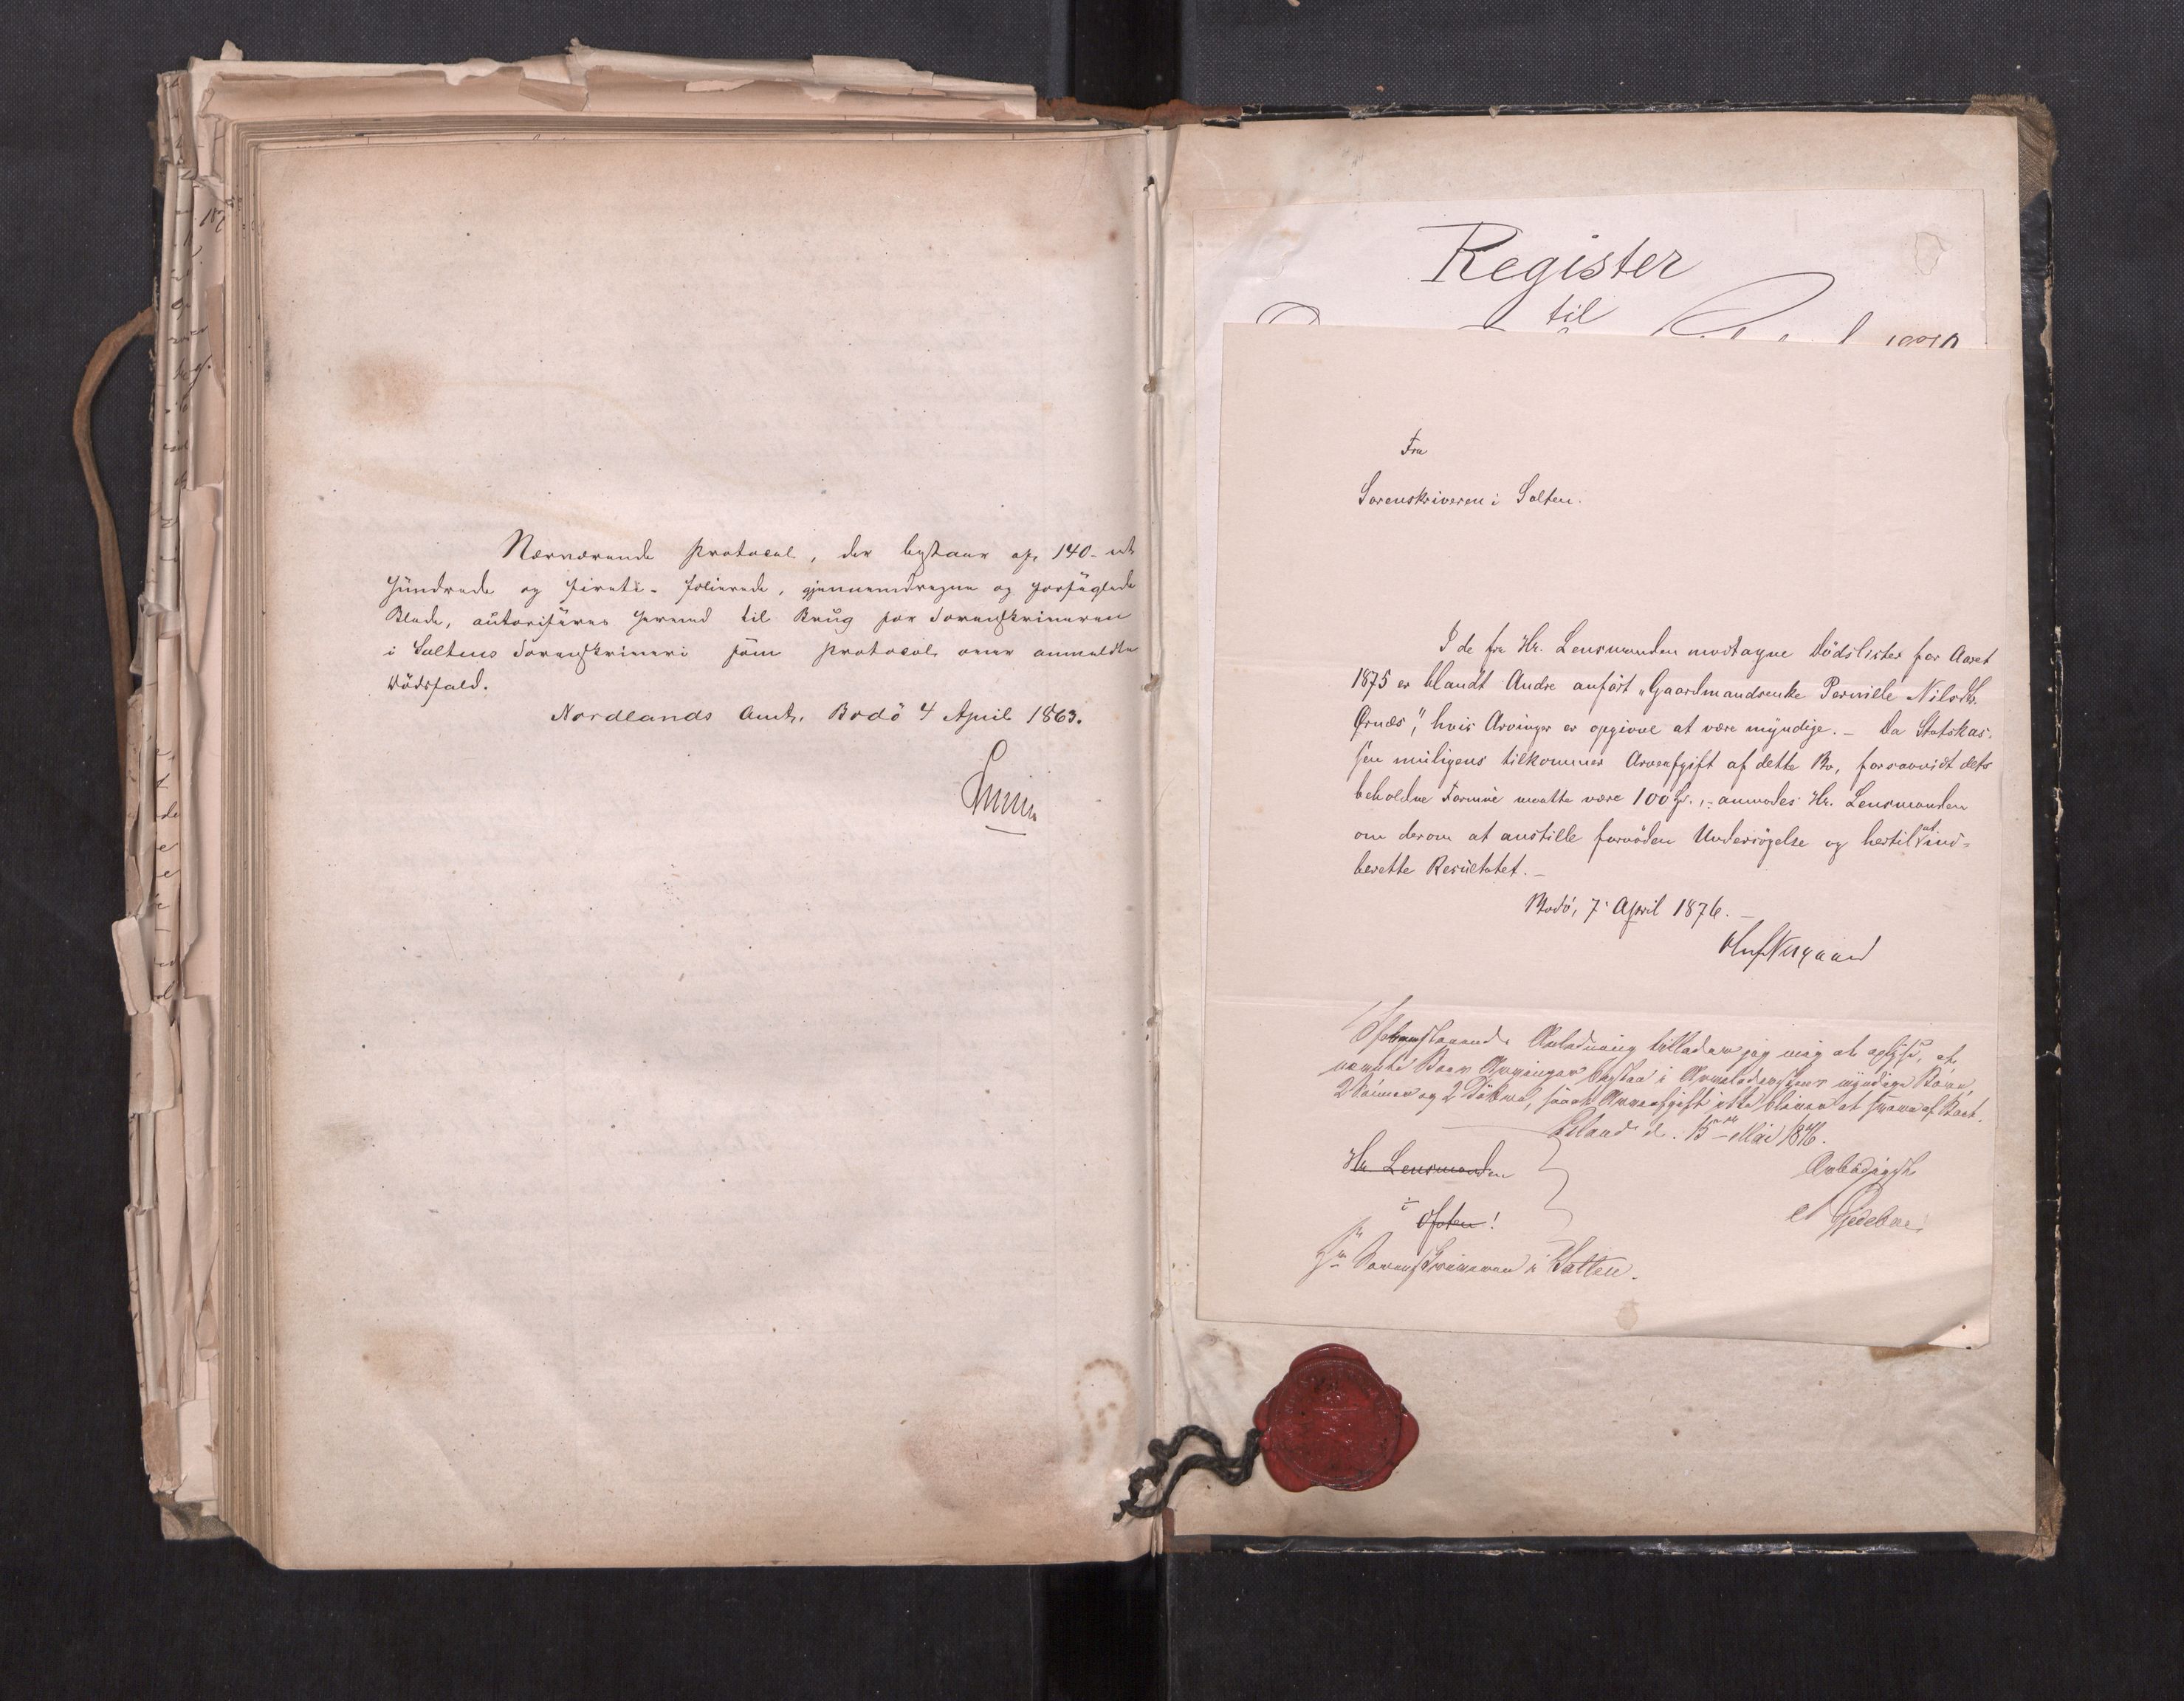 Nærværende Protocol, der bestaar af 140 - et
hundrede og fireti - folierede, gjennemdragne og forseglede
Blade, autoriseres herved til Brug for Sorenskriveren
i Saltens Sorenskriveri som Protocol over anmeldte
Dødsfald.
Nordlands Amt, Bodö 4 April 1863.
Register
til
Fra
Sorenskriveren i Salten.
I de fra Hr. Lensmanden modtagne Dödslister for Aaret
1875 er blandt Andre anfört "Gaardmandsenke Pernille Nilsdtr.
Ørnæs", hvis Arvinger er opgivne at være myndige. – Da Statskas-
sen muligens tilkommer Arveafgift af dette Bo, forsaavidt dets
beholdne Formue maatte være 100 Spd., - anmodes Hr. Lensmanden
om derom at anstille fornöden Undersögelse og hertil at ind-
berette Resultatet. –
Bodö, 7 April 1876. –
Ovenstaaende Anledning tillader jeg mig at oplyse, at
nævnte Boes Arvinger bestaa i Arveladerskens myndige Börn,
2 Sönner og 2 Dötre, saaat Arveafgift ikke bliver at svare af Boet.
Liland d. 15 Mai 1876.
Hr. Lensmanden
i
Ofoten!
Ærbödigst
Hr Sorenskriveren i Salten.